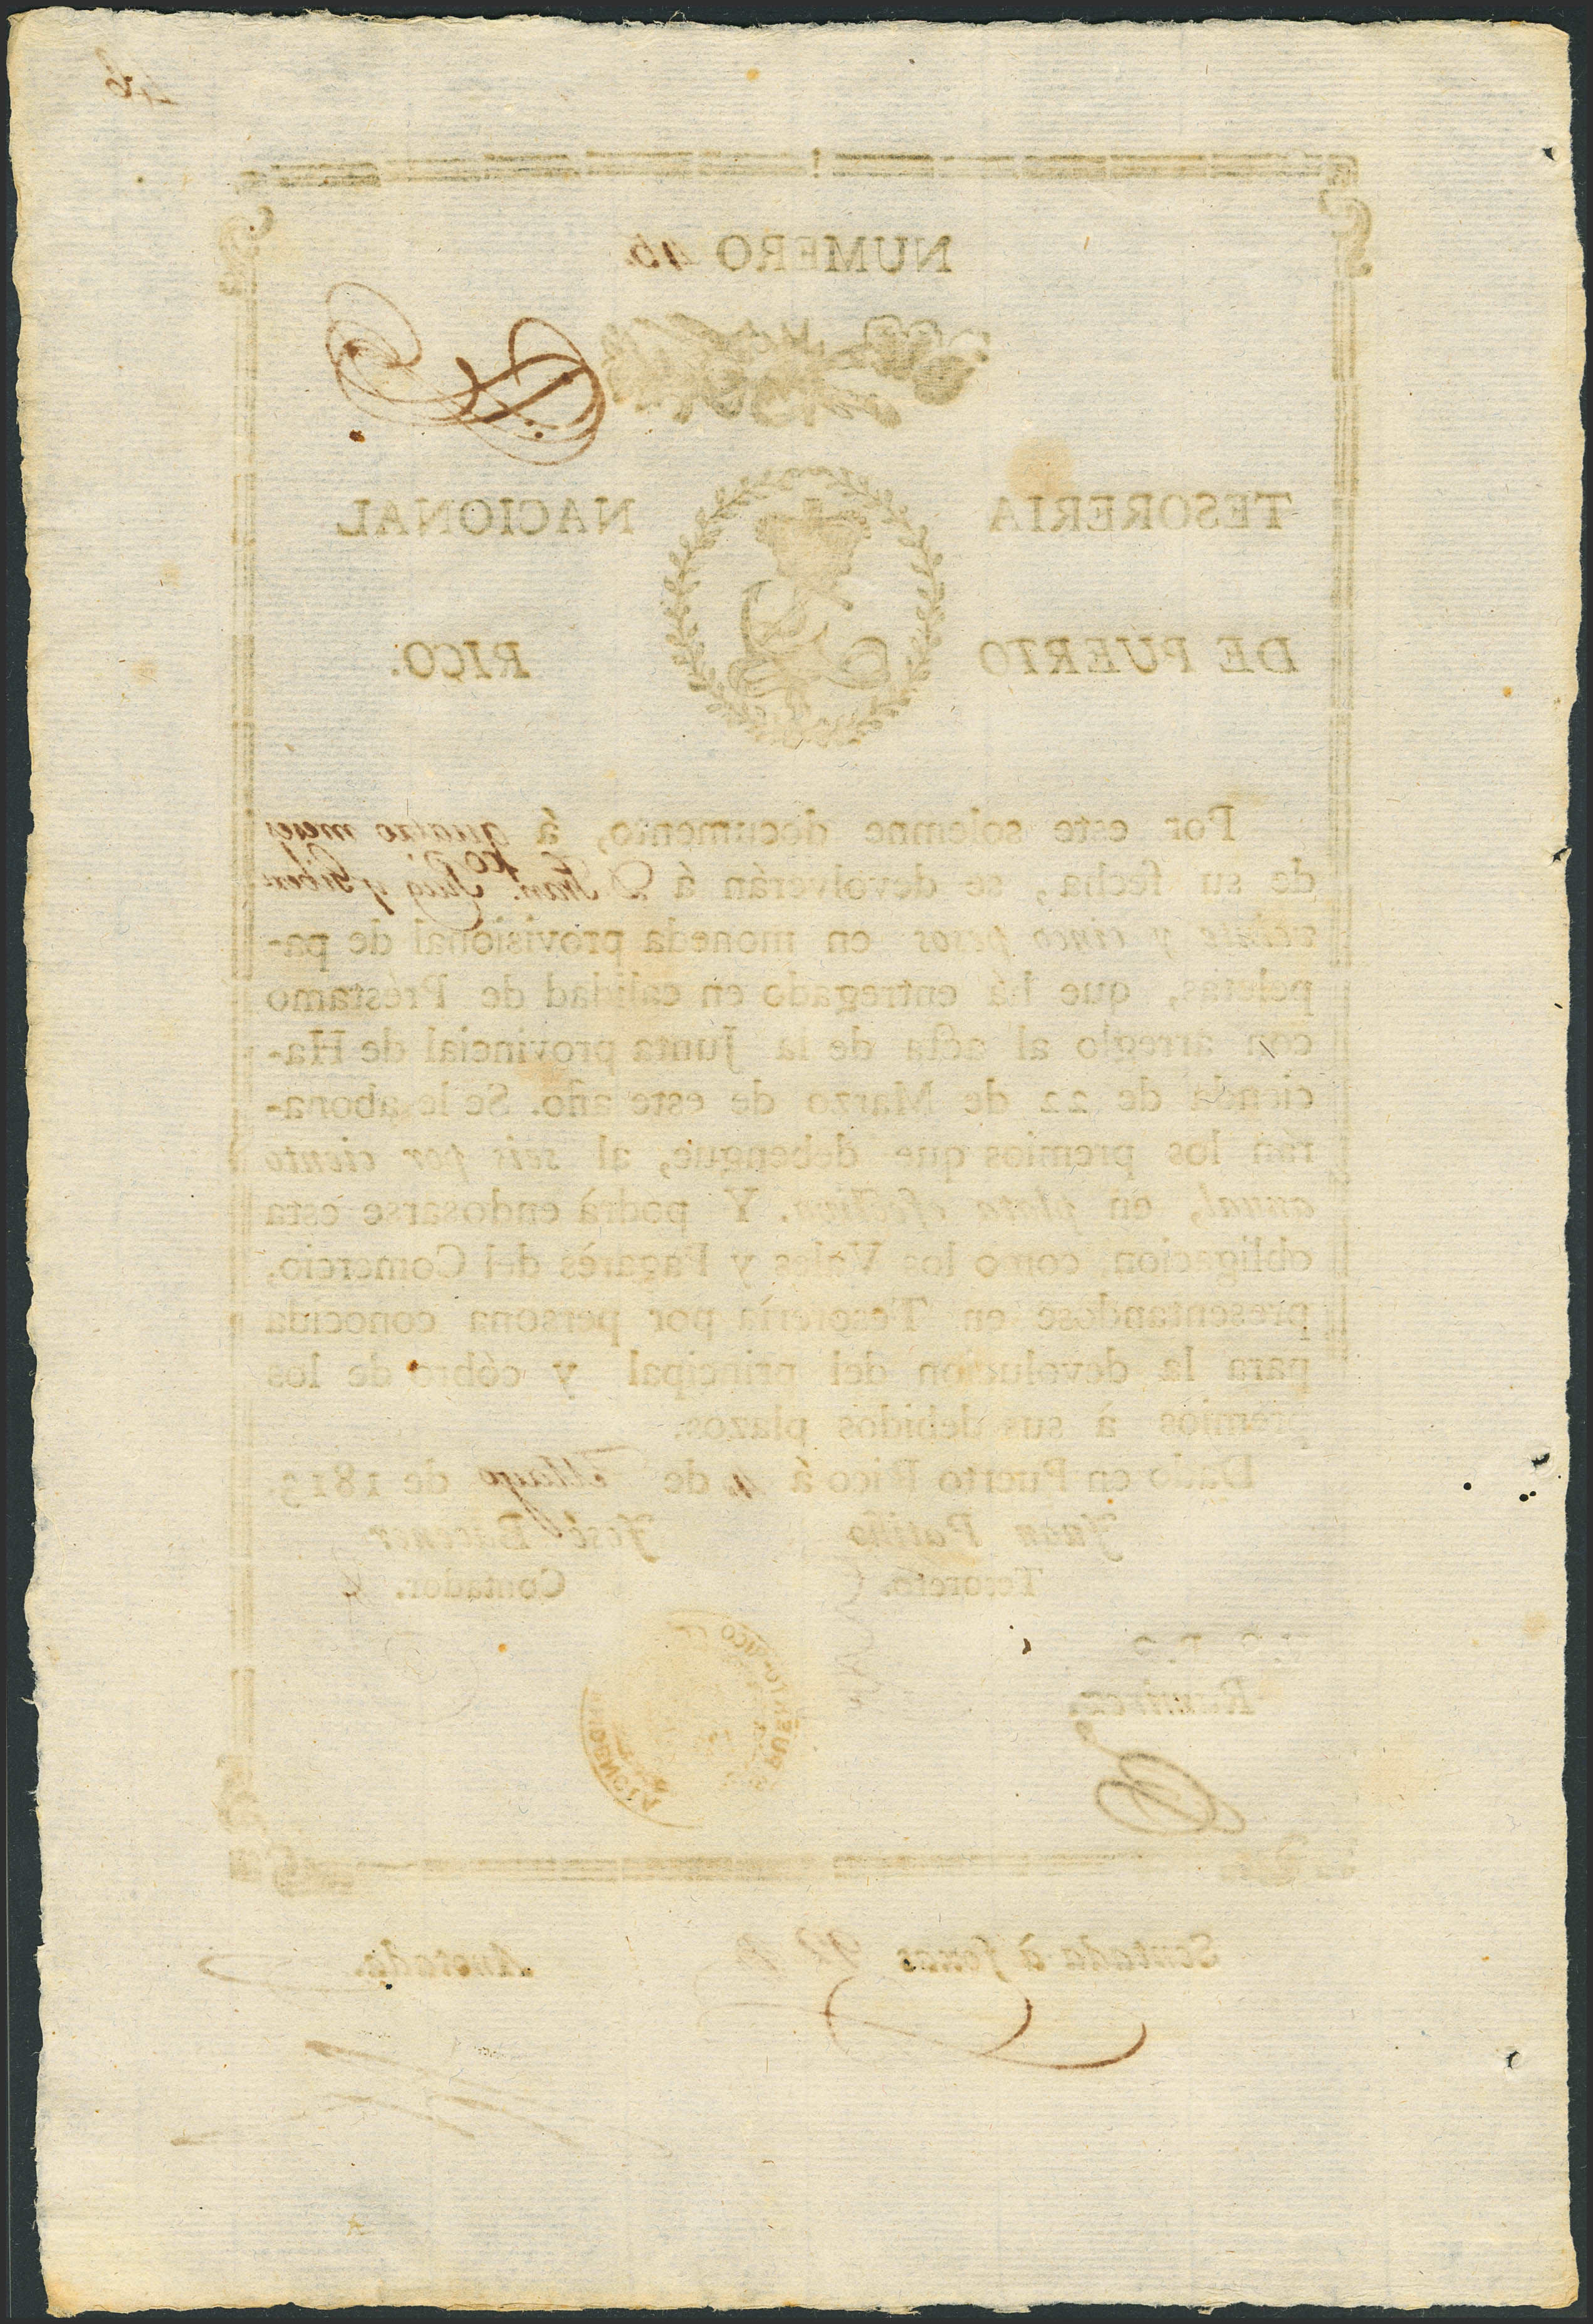 46
NUMERO 46.
TESORERIA NACIONAL
DE PUERTO RICO.
Por este solemne documento, á quatro meses
de su fecha, se devolverán á D. Fran.co Puig y
veinte y cinco pesos en moneda provisional de pa-
peletas, que há entregado en calidad de Préstamo
con arreglo al acta de la Junta provincial de Ha-
cienda de 22 de Marzo de este año. Se le abona-
rán los premios que debengue, al seis por ciento
anual, en plata efectiva. Y podrà endosarse esta
obligacion, como los Vales y Pagarès del Comercio,
presentandose en Tesorería por persona conocida
para la devolucion del principal y cóbro de los
premios à sus debidos plazos.
Dado en Puerto Rico á 4 de Mayo de 1813.
Juan Patiño José Bacener
Tesorero. Contador.
Ramirez.
PUERTO-RICO
Sentada à foxas 92 B Anotada.